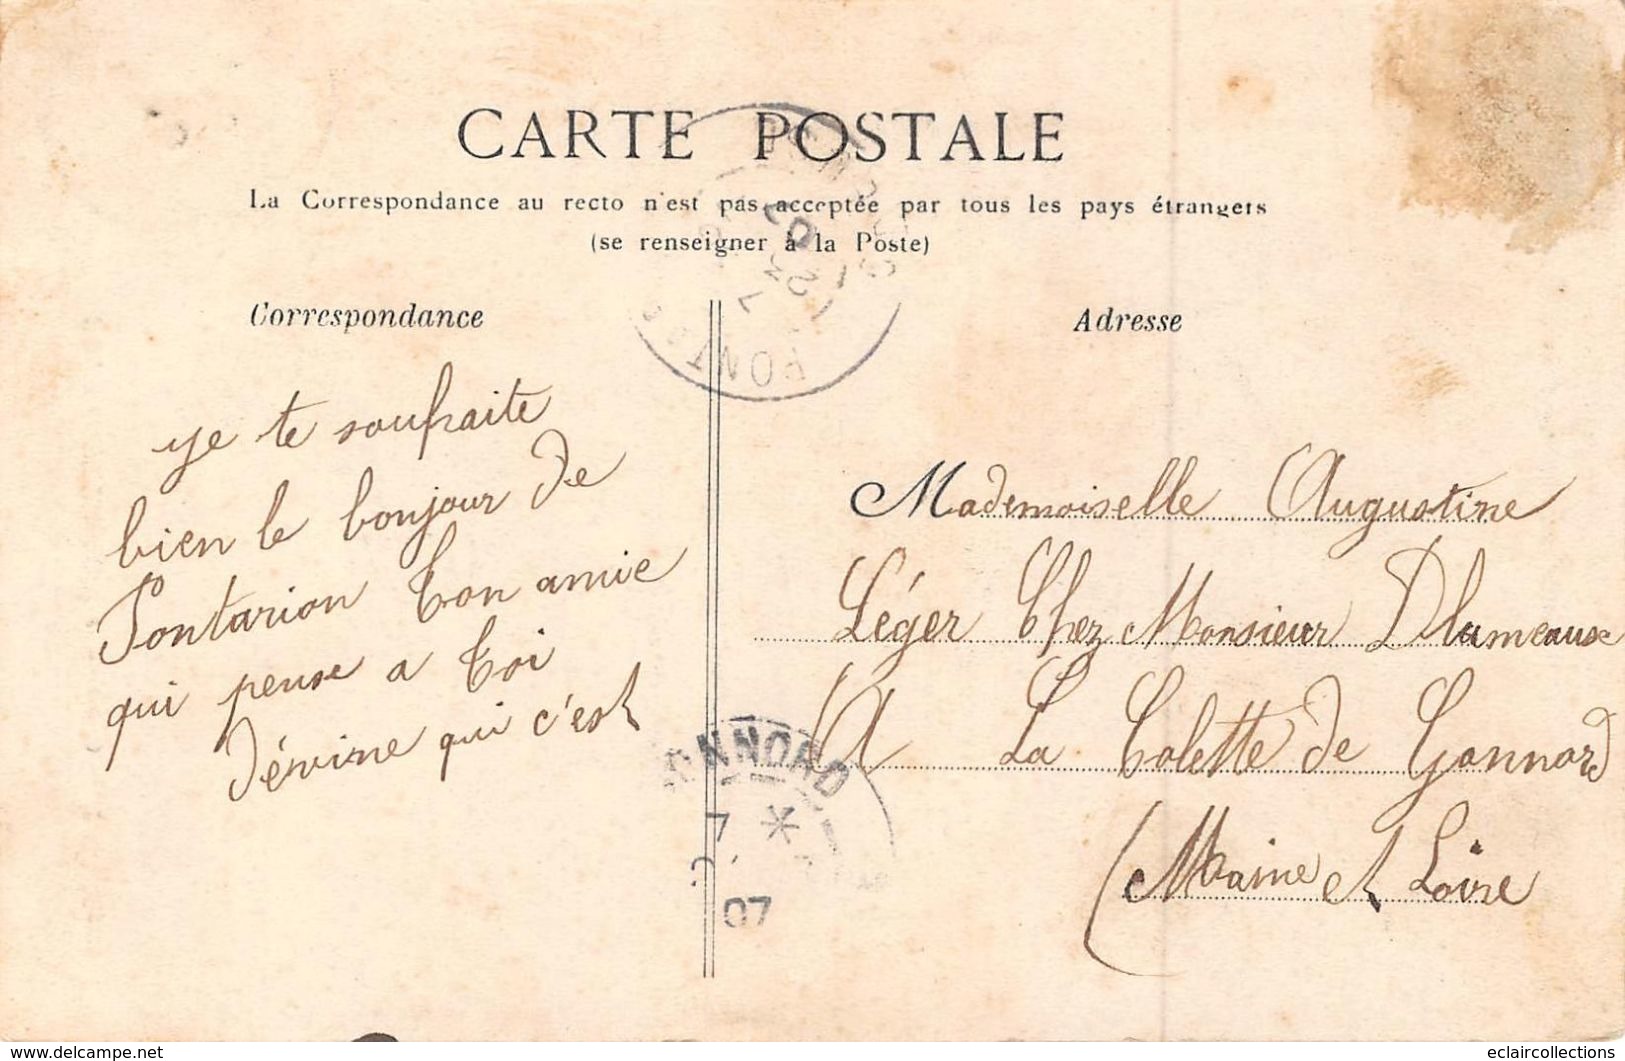 CARTE POSTALE
La Correspondance au recto n'est pas acceptée par tous les pays étrangers
(se renseigner à la Poste)
Correspondance
Adresse
ye te souhaite
bien le bonjour de
Pontarion ton amie
qui pense a toi
dévine qui c'est
Mademoiselle Augustine
Léger Chez Monsieur
A La Colette de Gonnord
(Maine et Loire
PONT
07
GONNORD
7 *
07
www.delcampe.net
eclaircollections